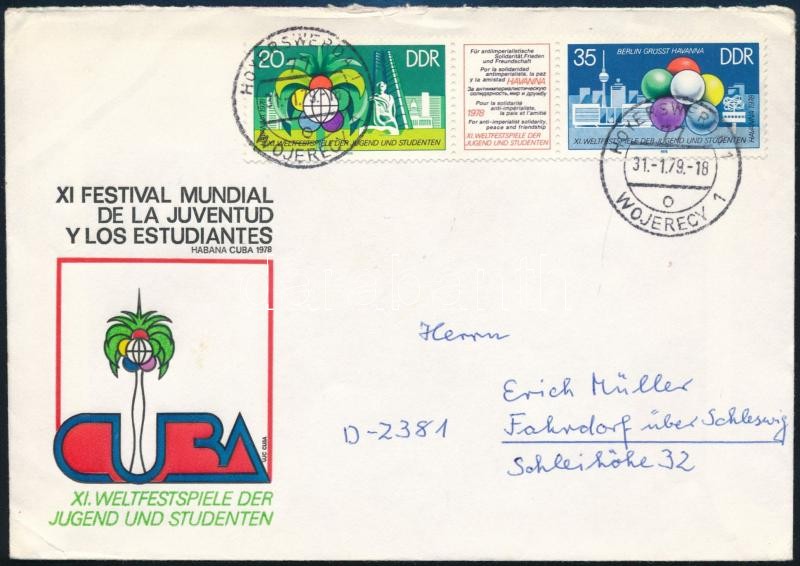 HOYERSWERDA 1
WOJERECY 1
20
DDR
XI. WELTFESTSPIELE DER JUGEND UND STUDENTEN
HAVANNA 1978
Für antiimperialistische
Solidarität, Frieden
und Freundschaft
Por la solidaridad
antiimperialista, la paz y
la amistad HAVANNA
За антиимпериалистическую
солидарность, мир и дружбу
Pour la solidarité
1978 anti-impérialiste,
la paix et l'amitié
For anti-imperialist solidarity,
peace and friendship
XI. WELTFESTSPIELE DER
JUGEND UND STUDENTEN
35
BERLIN GRÜSST HAVANNA
DDR
XI. WELTFESTSPIELE DER JUGEND UND STUDENTEN
HAVANNA 1978
HOYERSWERDA 1
31.-1.79.-18
o
WOJERECY 1
XI FESTIVAL MUNDIAL
DE LA JUVENTUD
Y LOS ESTUDIANTES
HABANA CUBA 1978
CUBA
UJC CUBA
XI. WELTFESTSPIELE DER
JUGEND UND STUDENTEN
Herrn
Erich Müller
D-2381 Fahrdorf über Schleswig
Schleihöhe 32